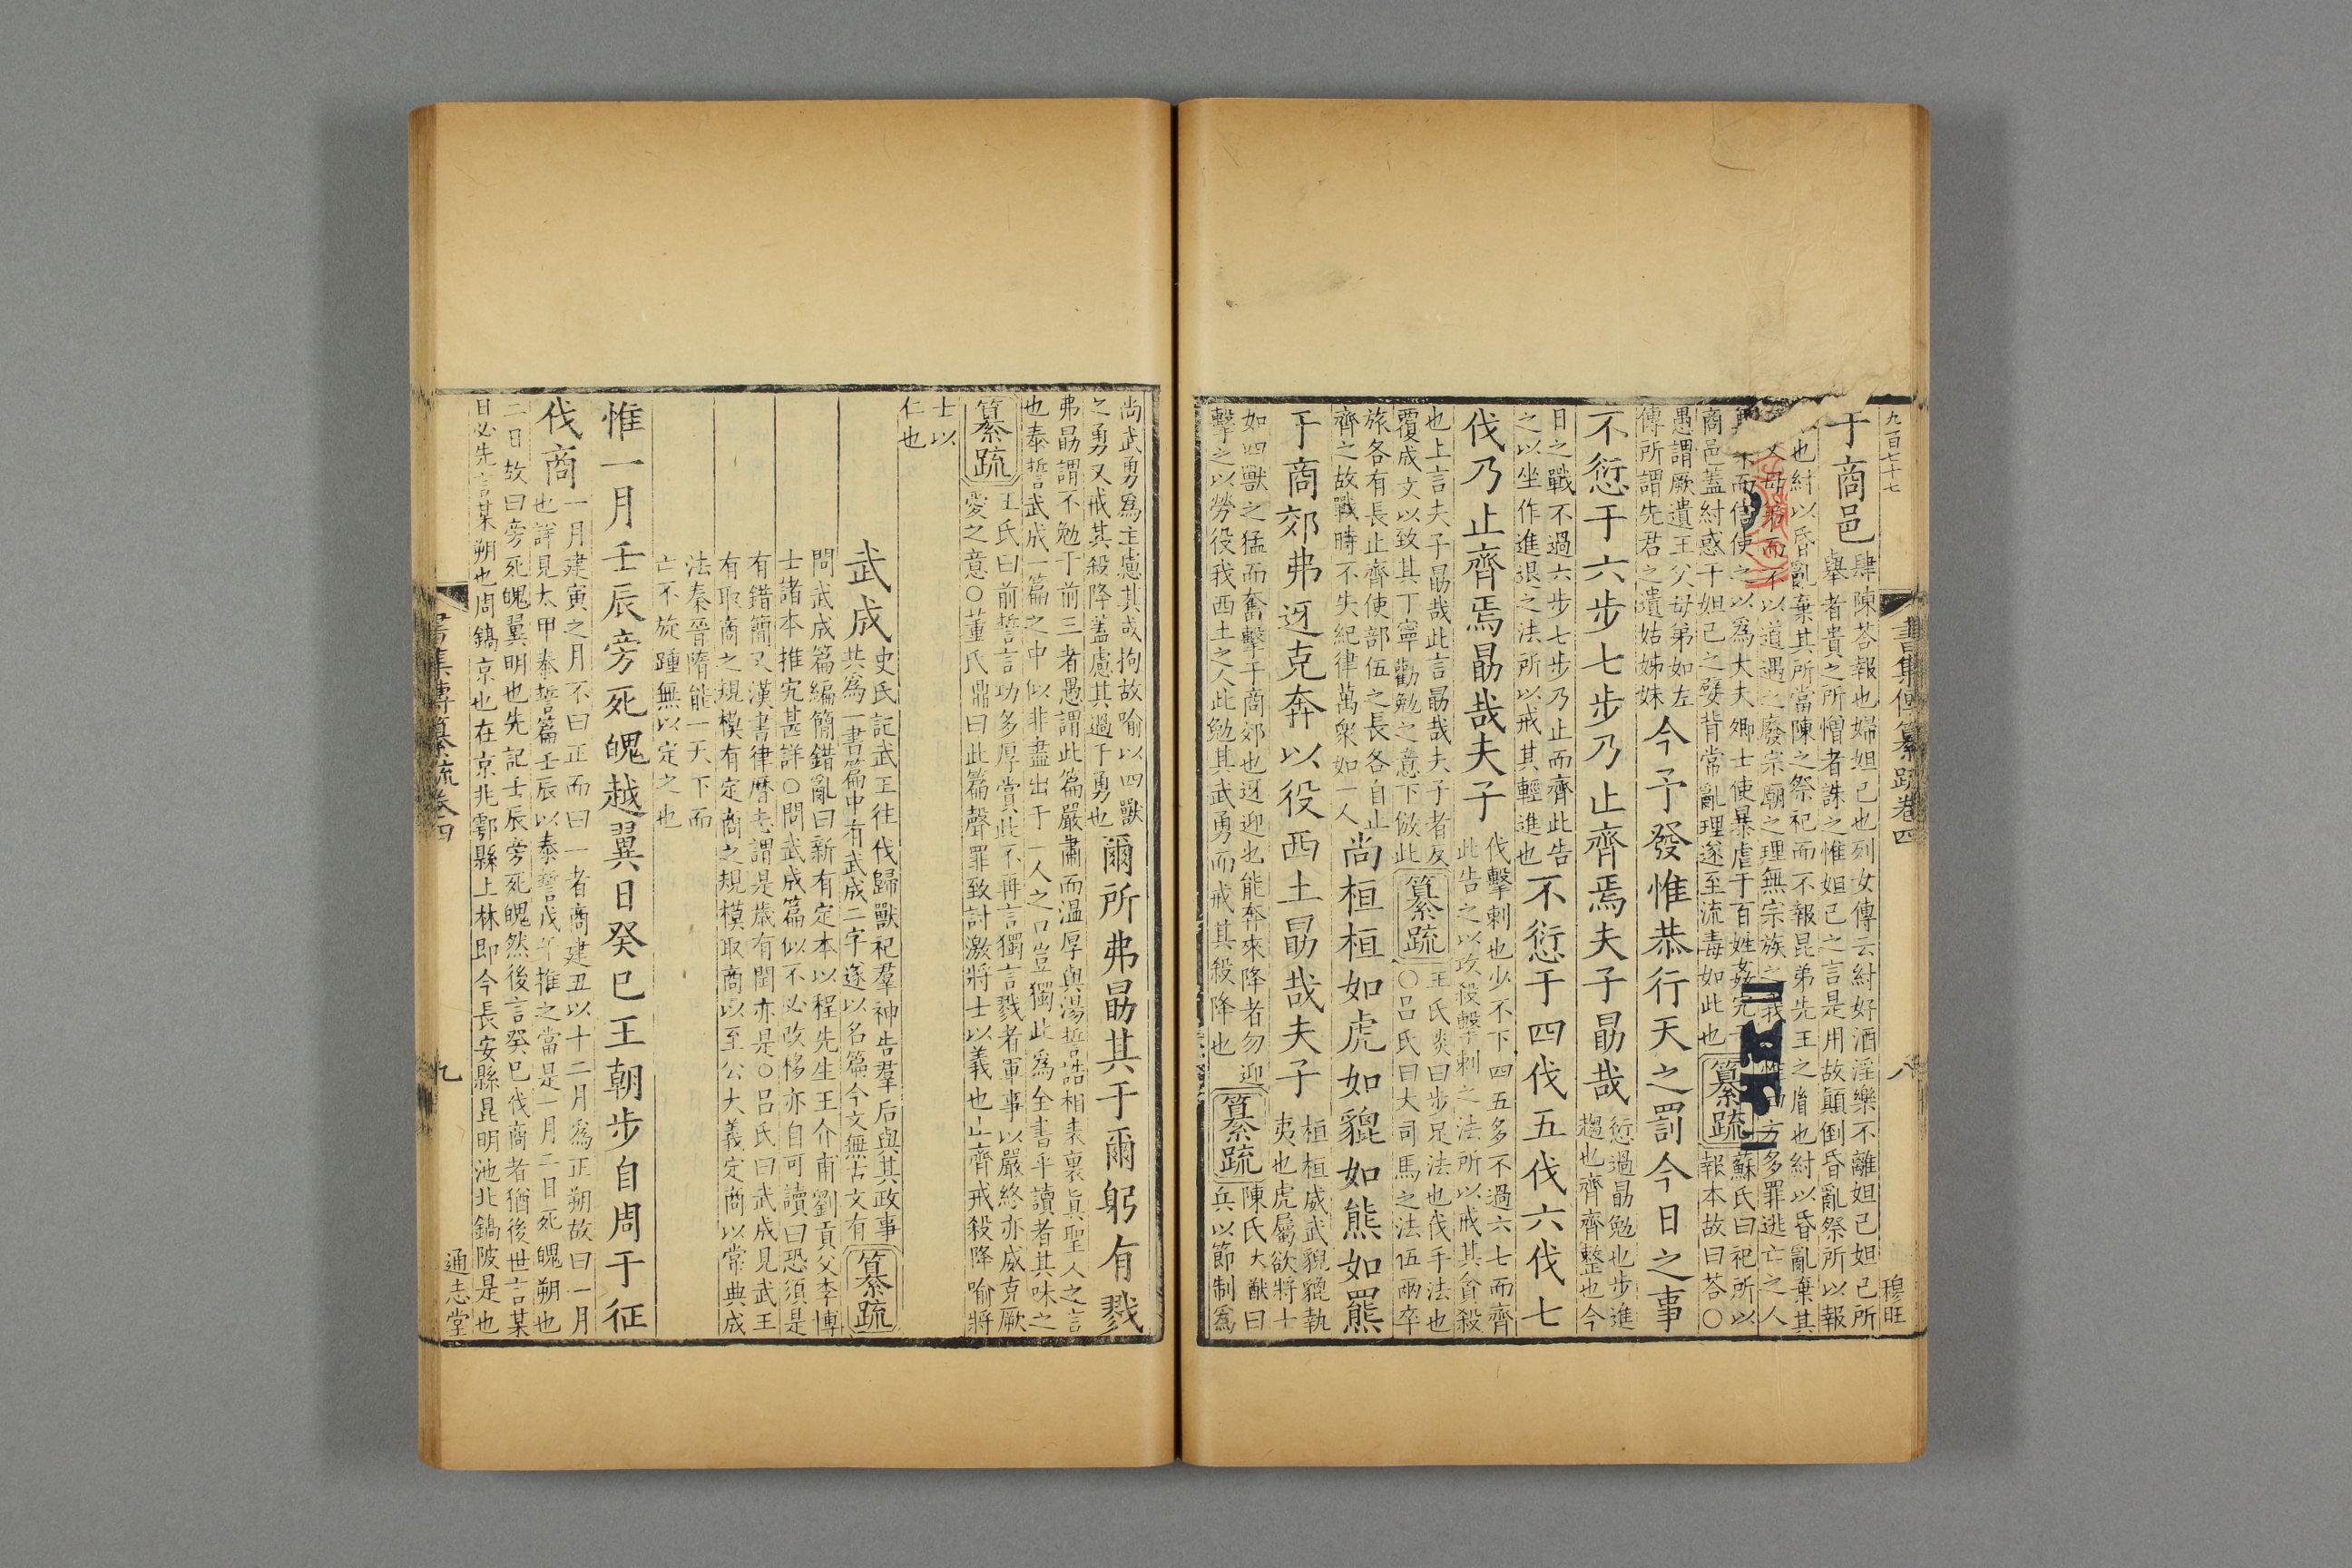 九百七十七
書集傳纂疏卷四
八
穆旺
于商邑
肆陳荅報也婦妲己也列女傳云紂好酒淫樂不離妲己妲己所
舉者貴之所憎者誅之惟妲己之言是用故顛倒昏亂祭所以報
也紂以昏亂棄其所當陳之祭祀而不報昆弟先王之胄也紂以昏亂棄其
父母弟而不以道遇之廢宗廟之理無宗族之
方多罪逃亡之人
而信使之以爲大夫卿士使暴虐于百姓姦宄于
商邑蓋紂惑于妲己之嬖背常亂理遂至流毒如此也
纂疏
蘇氏曰祀所以
報本故曰荅○
愚謂厥遺王父母弟如左
傳所謂先君之遺姑姊妹
今予發惟恭行天之罰今日之事
不愆于六步七步乃止齊焉夫子勗哉
愆過勗勉也步進
趨也齊齊整也今
日之戰不過六步七步乃止而齊此告
之以坐作進退之法所以戒其輕進也
不愆于四伐五伐六伐七
伐乃止齊焉勗哉夫子
伐擊刺也少不下四五多不過六七而齊
此告之以攻殺擊刺之法所以戒其貪殺
也上言夫子勗哉此言勗哉夫子者反
覆成文以致其丁寧勸勉之意下倣此
纂疏
王氏炎曰步足法也伐手法也
○呂氏曰大司馬之法伍兩卒
旅各有長止齊使部伍之長各自止
齊之故戰時不失紀律萬衆如一人
尚桓桓如虎如貔如熊如羆
于商郊弗迓克奔以役西土勗哉夫子
桓桓威武貌貔執
夷也虎屬欲將士
如四獸之猛而奮擊于商郊也迓迎也能奔來降者勿迎
擊之以勞役我西土之人此勉其武勇而戒其殺降也
纂疏
陳氏大猷曰
兵以節制爲
尚武勇爲主慮其或拘故喻以四獸
之勇又戒其殺降蓋慮其過于勇也
爾所弗勗其于爾躬有戮
弗勗謂不勉于前三者愚謂此篇嚴肅而溫厚與湯誓誥相表裏眞聖人之言
也泰誓武成一篇之中似非盡出于一人之口豈獨此爲全書乎讀者其味之
纂疏
王氏曰前誓言功多厚賞此不再言獨言戮者軍事以嚴終亦威克厥
愛之意○董氏鼎曰此篇聲罪致討激將士以義也止齊戒殺降喻將
士以
仁也
武成
史氏記武王往伐歸獸祀羣神告羣后與其政事
共爲一書篇中有武成二字遂以名篇今文無古文有
纂疏
問武成篇編簡錯亂曰新有定本以程先生王介甫劉貢父李博
士諸本推究甚詳○問武成篇似不必改移亦自可讀曰恐須是
有錯簡又漢書律曆志謂是歲有閏亦是○呂氏曰武成見武王
有取商之規模有定商之規模取商以至公大義定商以常典成
法秦晉隋能一天下而
亡不旋踵無以定之也
惟一月壬辰旁死魄越翼日癸巳王朝步自周于征
伐商
一月建寅之月不曰正而曰一者商建丑以十二月爲正朔故曰一月
也詳見太甲泰誓篇壬辰以泰誓戊午推之當是一月二日死魄朔也
二日故曰旁死魄翼明也先記壬辰旁死魄然後言癸巳伐商者猶後世言某
日必先言某朔也周鎬京也在京兆鄠縣上林即今長安縣昆明池北鎬陂是也
書集傳纂疏卷四
九
通志堂